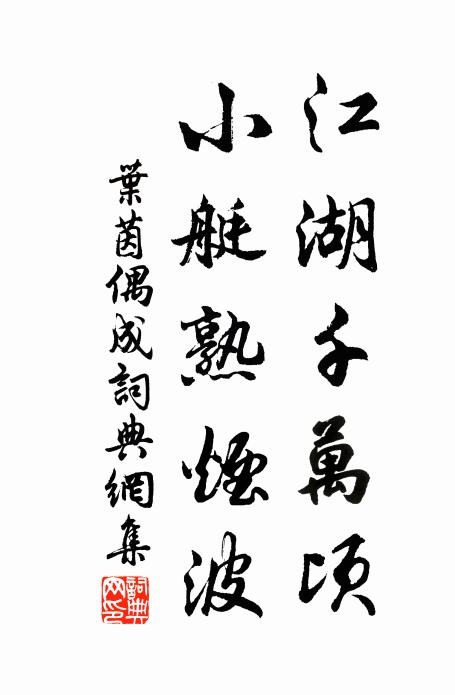 江湖千萬頃
小艇熟煙波
葉茵偶成詞典網集
詞典網印